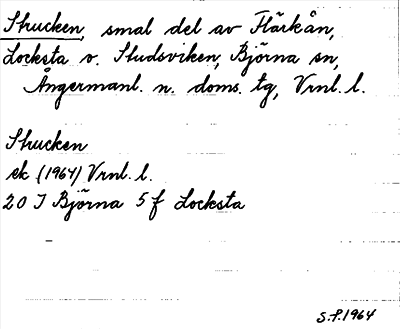 Strucken, smal del av Flärkån,
Locksta v. Studsviken, Björna sn,
Ångermanl. n. doms. tg, Vrnl. l.
Strucken
ek (1964) Vrnl. l.
20 I Björna 5 f Locksta
S.P. 1964